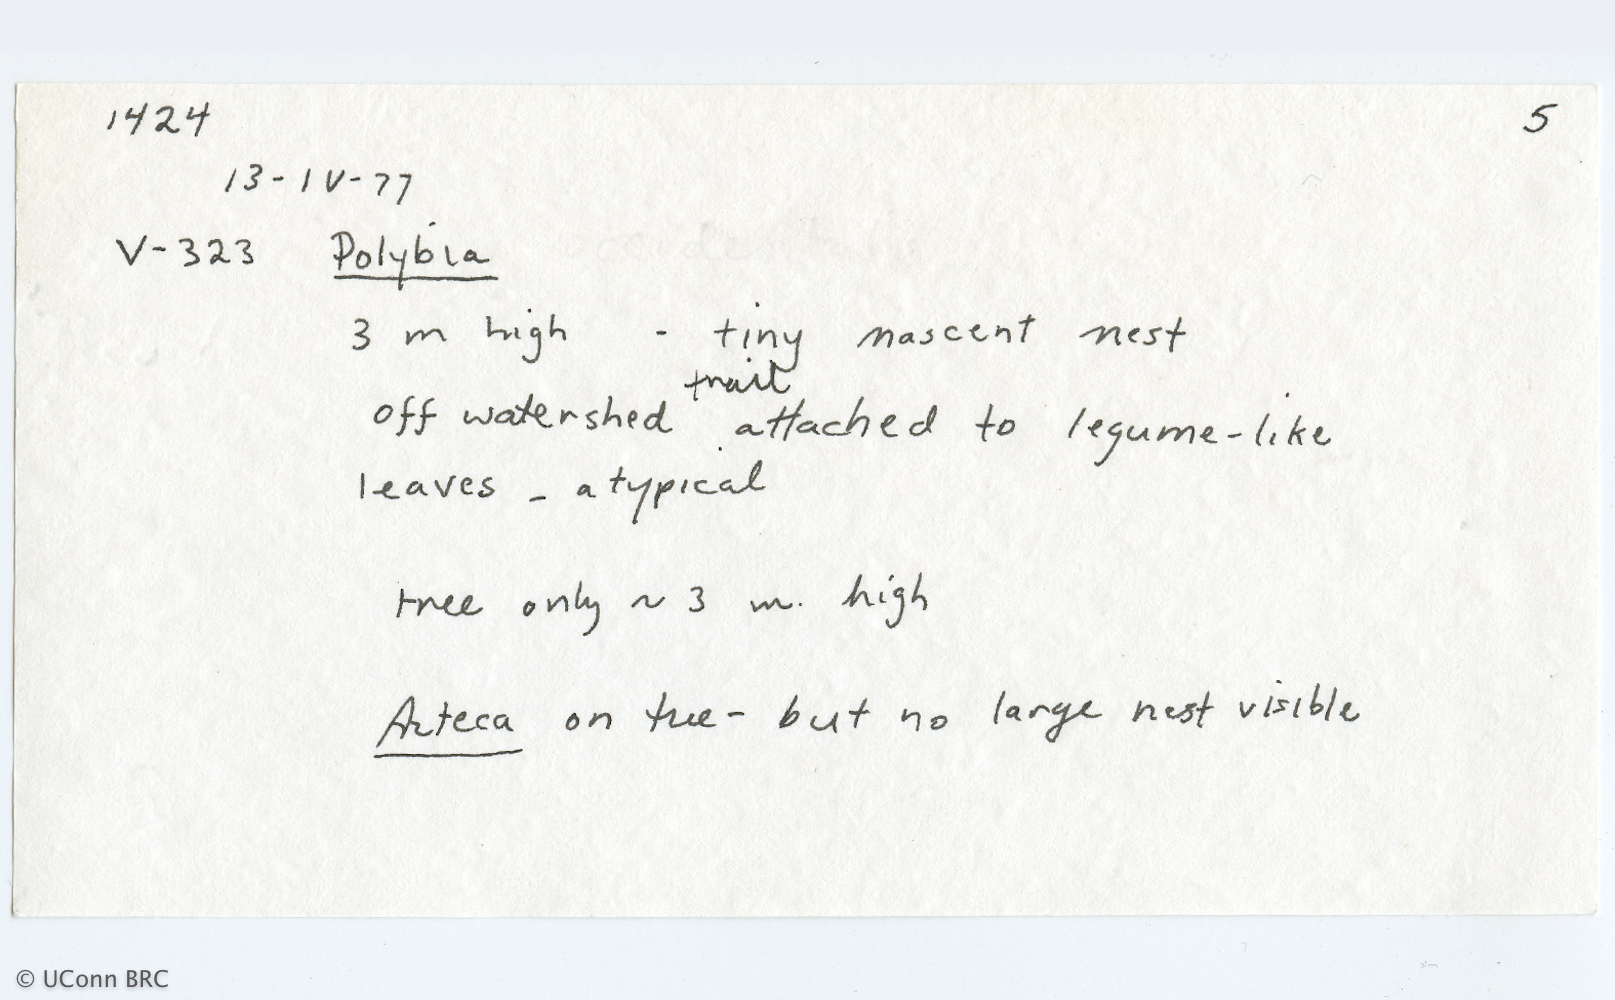 1424 5
13-IV-77
V-323 Polybia
3 m high - tiny nascent nest
trail
off watershed attached to legume-like
leaves - atypical
tree only ~ 3 m. high
Azteca on tree - but no large nest visible
© UConn BRC